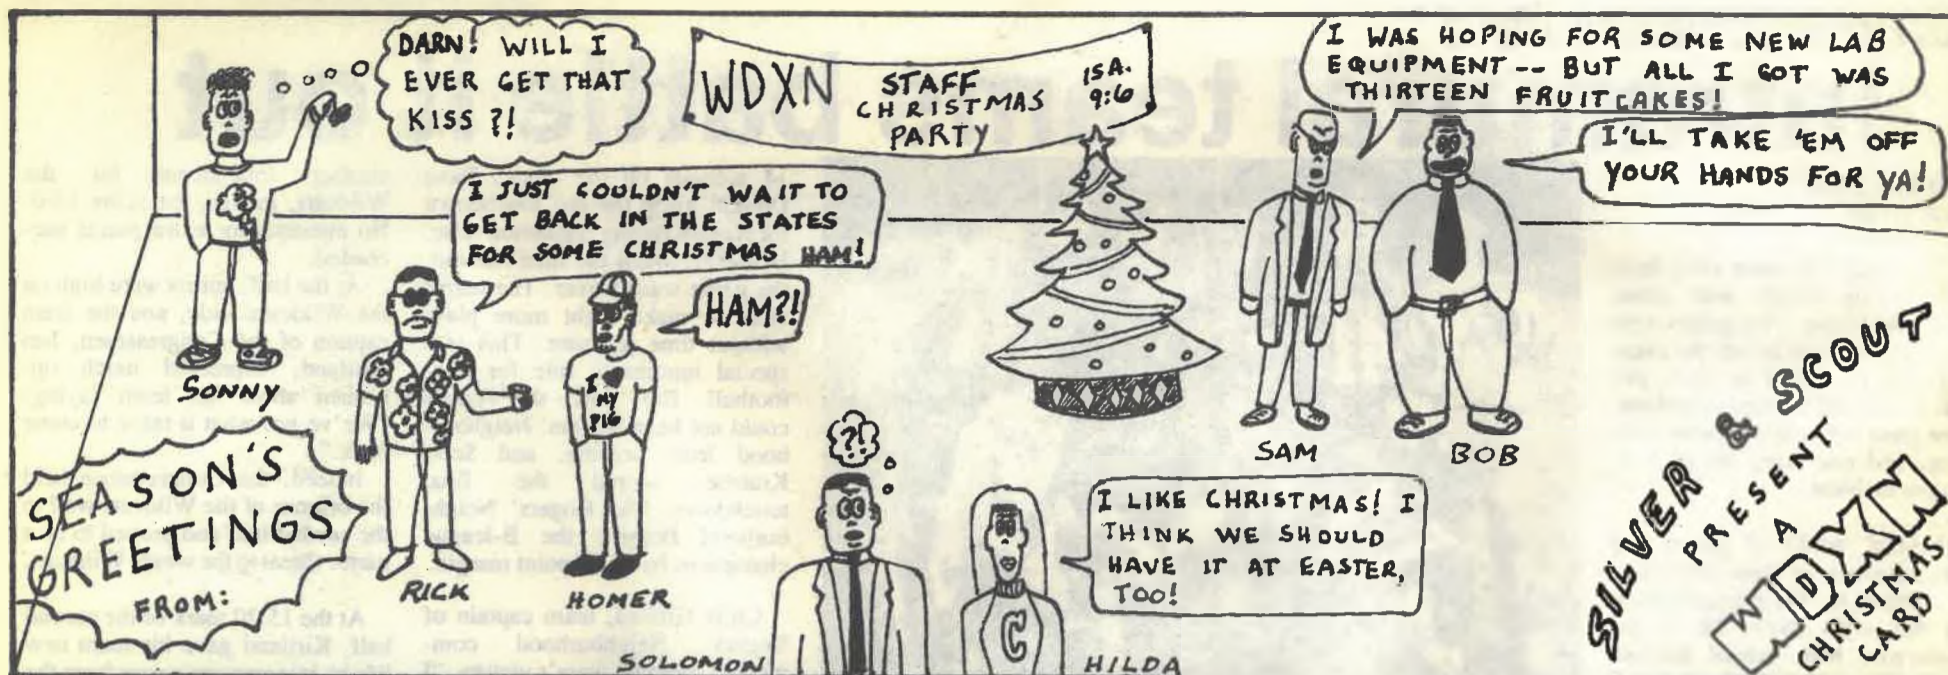 DARN! WILL I
EVER GET THAT
KISS ?!
WDXN STAFF
CHRISTMAS
PARTY
ISA.
9:6
I WAS HOPING FOR SOME NEW LAB
EQUIPMENT -- BUT ALL I GOT WAS
THIRTEEN FRUITCAKES!
I'LL TAKE 'EM OFF
YOUR HANDS FOR YA!
I JUST COULDN'T WAIT TO
GET BACK IN THE STATES
FOR SOME CHRISTMAS HAM!
HAM?!
I ♥
MY
PIG
SONNY
RICK
HOMER
SAM
BOB
SEASON'S
GREETINGS
FROM:
?!
I LIKE CHRISTMAS! I
THINK WE SHOULD
HAVE IT AT EASTER,
TOO!
C
SOLOMON
HILDA
SILVER & SCOUT
PRESENT
A
WDXN
CHRISTMAS
CARD